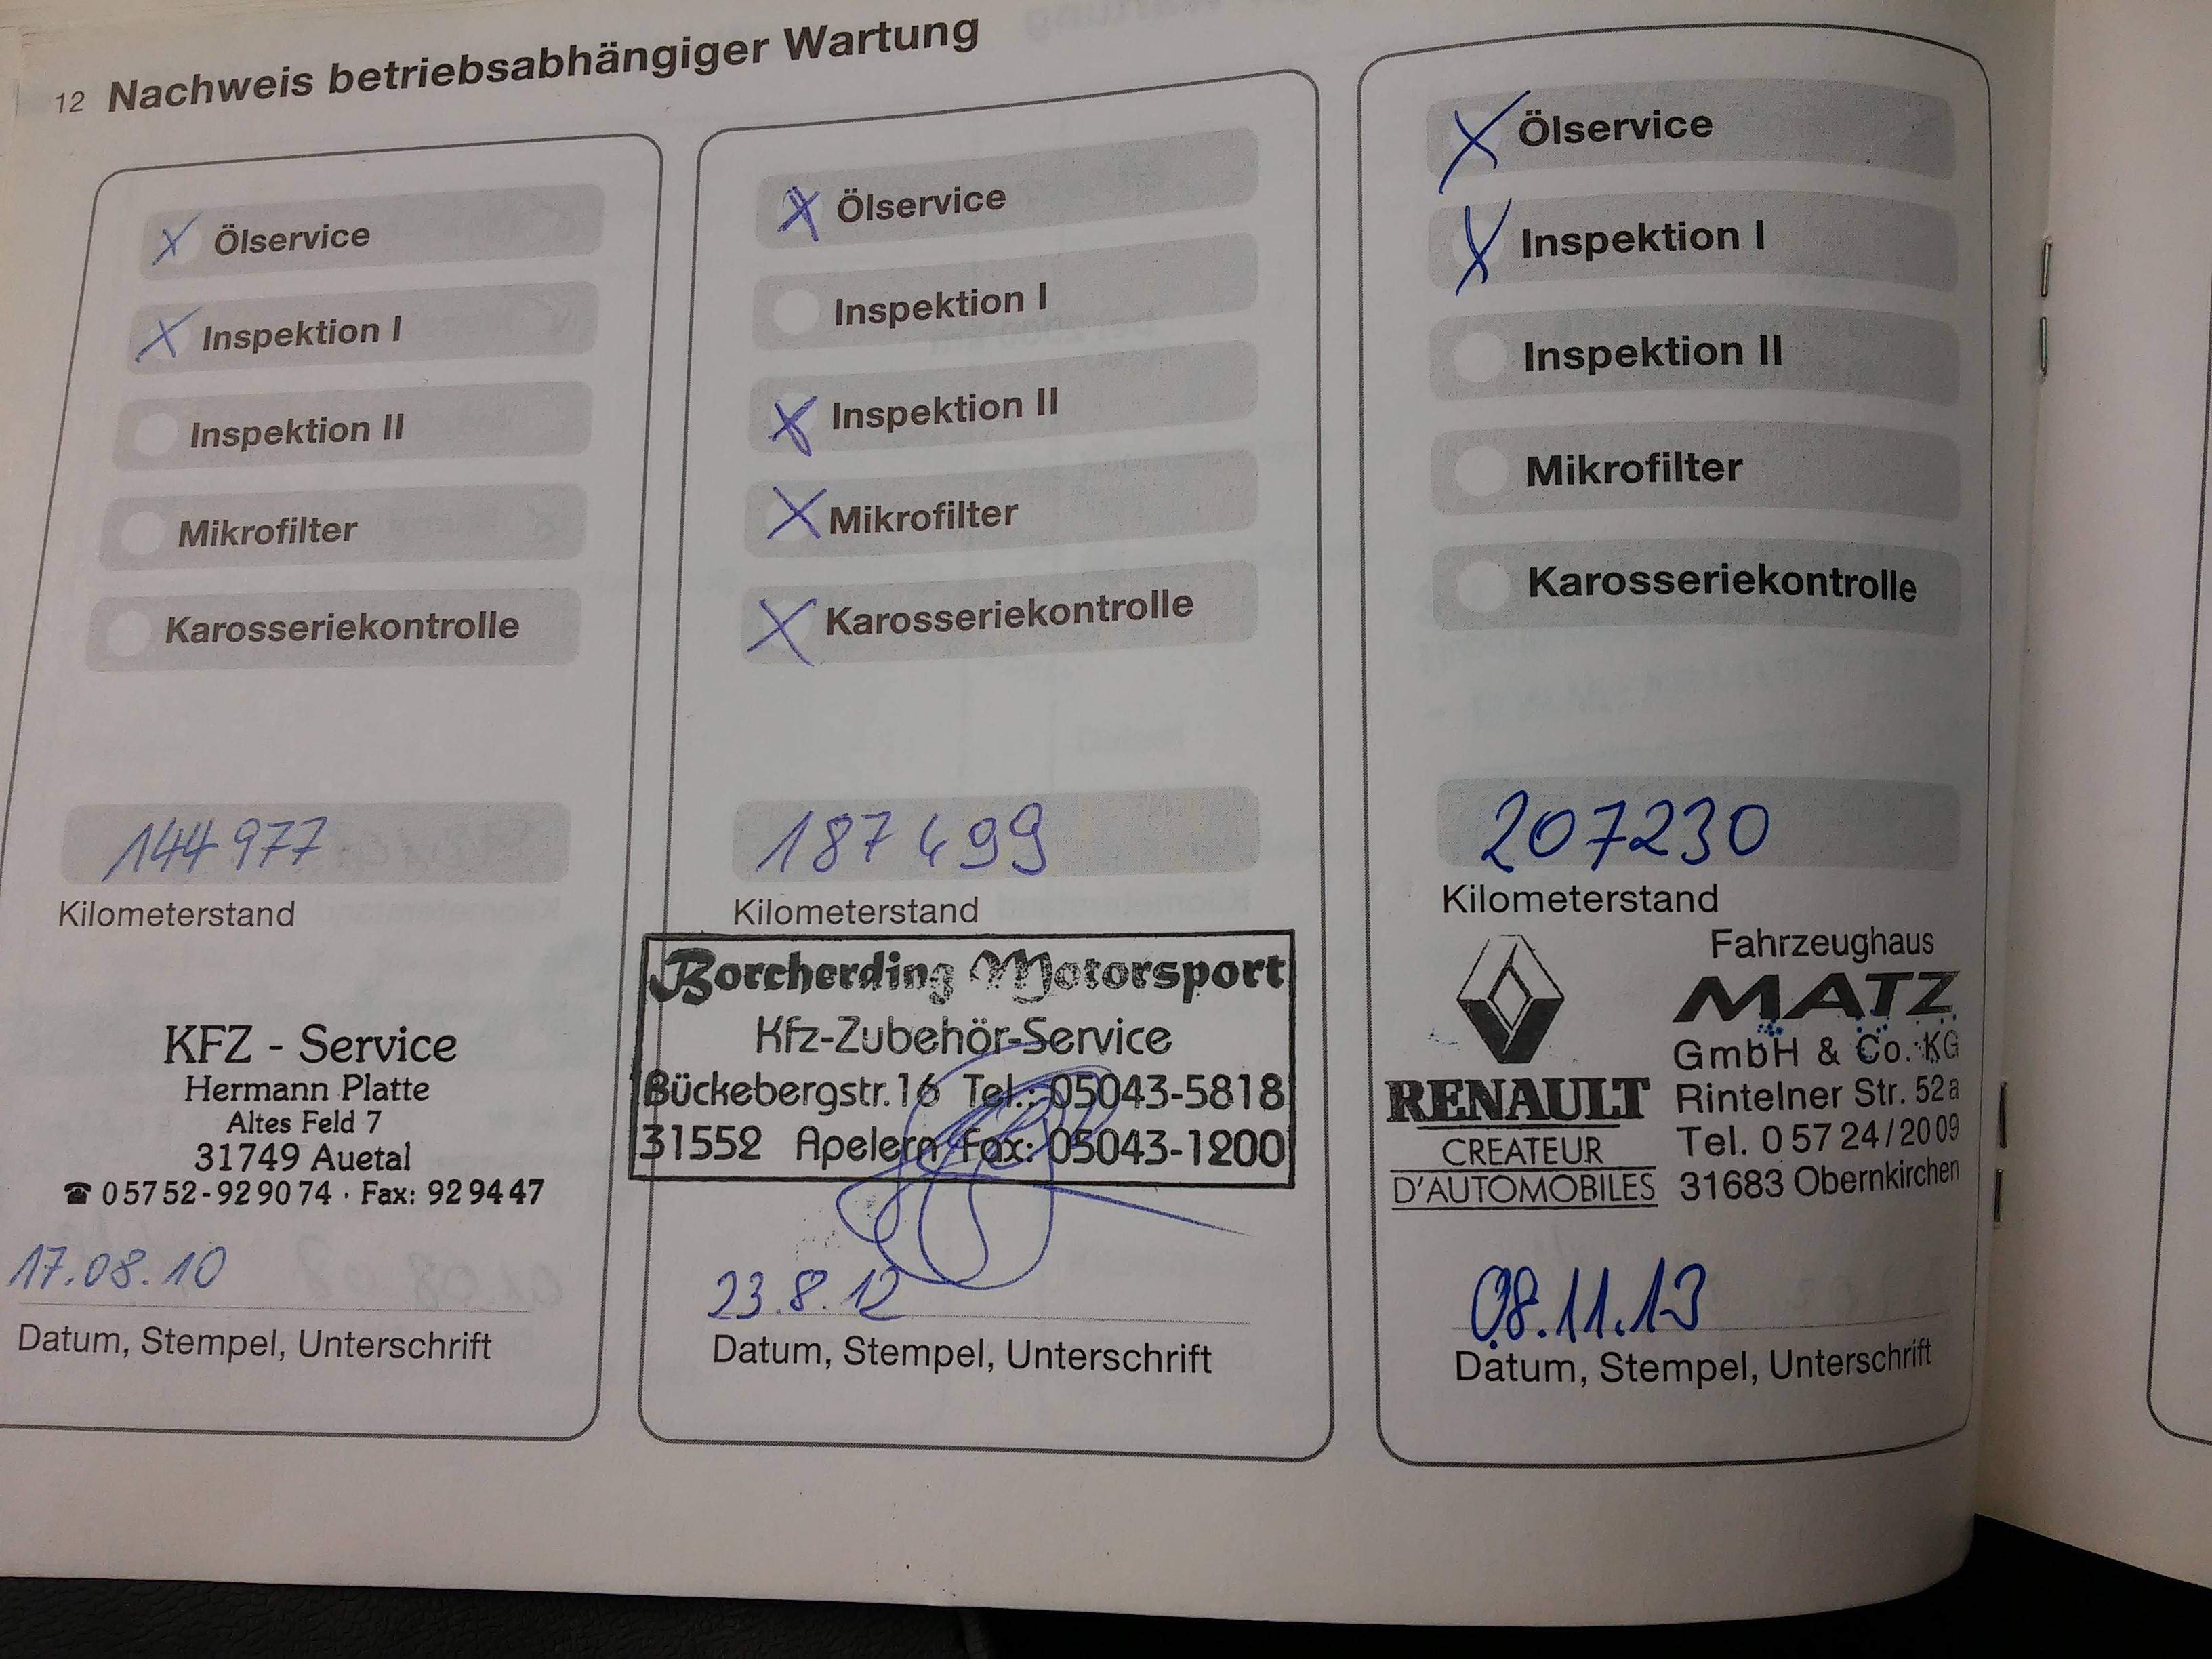 12 Nachweis betriebsabhängiger Wartung
X Ölservice
X Inspektion I
Inspektion II
Mikrofilter
Karosseriekontrolle
144 977
Kilometerstand
KFZ - Service
Hermann Platte
Altes Feld 7
31749 Auetal
☎ 05752-929074 · Fax: 929447
17.08.10
Datum, Stempel, Unterschrift
X Ölservice
Inspektion I
X Inspektion II
X Mikrofilter
X Karosseriekontrolle
187 499
Kilometerstand
Borcherding Motorsport
Kfz-Zubehör-Service
Bückebergstr.16 Tel.: 05043-5818
31552 Apelern Fax: 05043-1200
23.8.12
Datum, Stempel, Unterschrift
X Ölservice
X Inspektion I
Inspektion II
Mikrofilter
Karosseriekontrolle
207230
Kilometerstand
RENAULT
CREATEUR
D'AUTOMOBILES
Fahrzeughaus
MATZ
GmbH & Co. KG
Rintelner Str. 52a
Tel. 05724/2009
31683 Obernkirchen
08.11.13
Datum, Stempel, Unterschrift